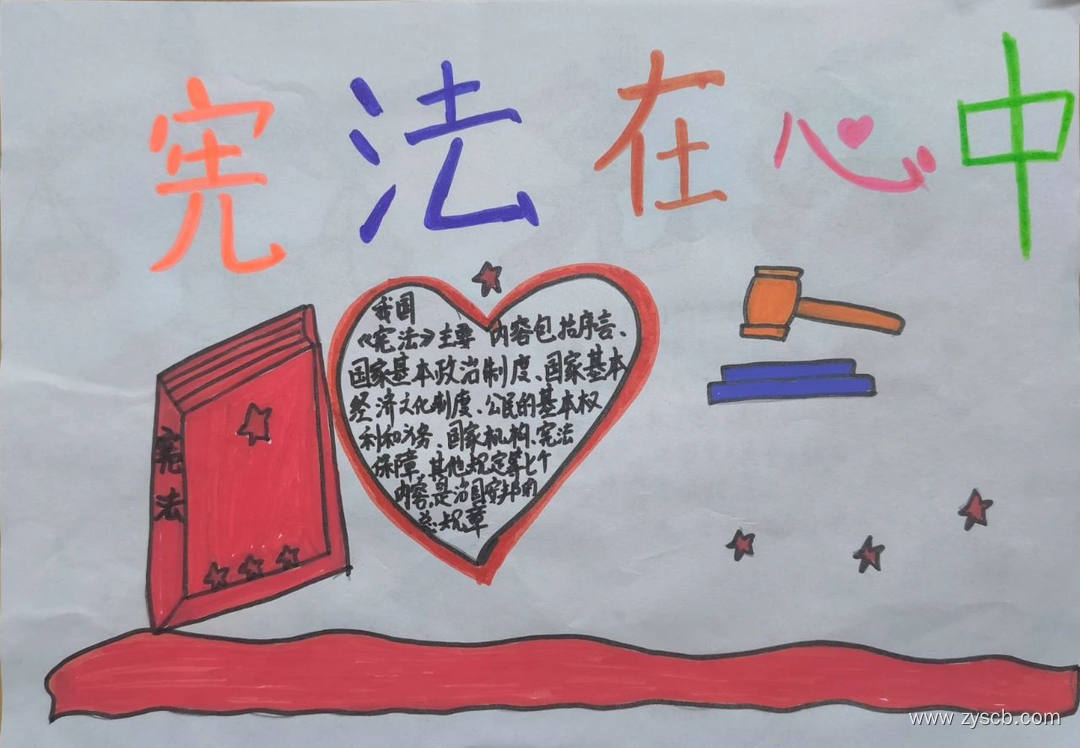 宪法在心中
我国
《宪法》主要 内容包括序言、
国家基本政治制度、国家基本
经济文化制度、公民的基本权
利和义务、国家机构、宪法
保障,其他规定等七个
内容,是治国安邦的
总规章
宪法
www.zyscb.com